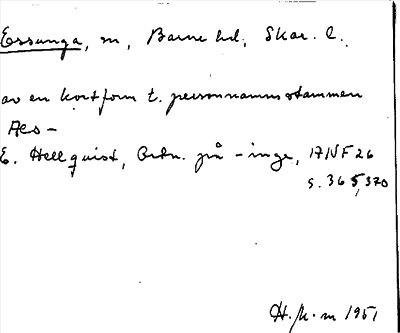 Essunga, sn, Barne hd, Skar. l.
av en kortform t. personnamnsstammen
Aes-
E. Hellquist, Ortn. på -inge, 17NF26
s. 365, 370
1951